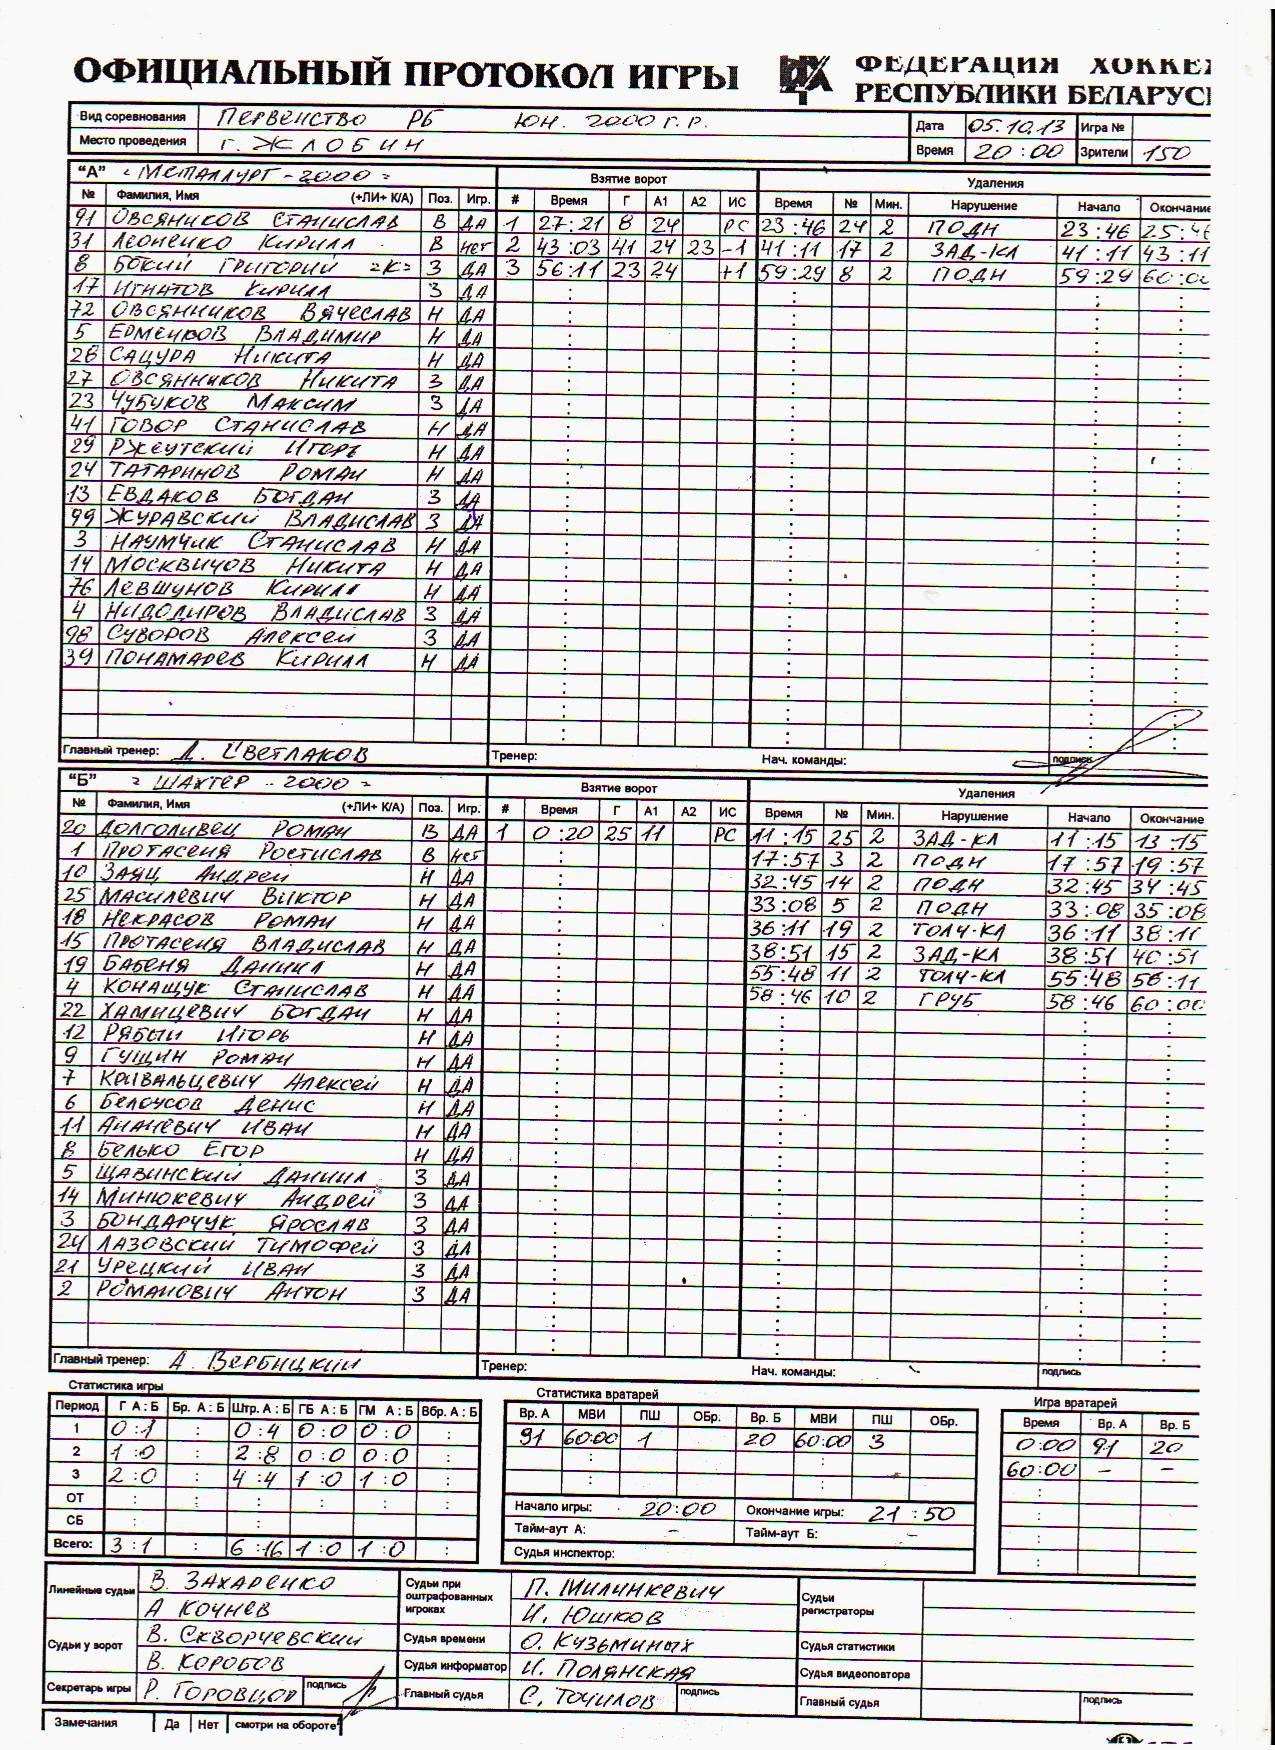 ОФИЦИАЛЬНЫЙ ПРОТОКОЛ ИГРЫ ФЕДЕРАЦИЯ ХОККЕ
РЕСПУБЛИКИ БЕЛАРУС
Вид соревнования Первенство РБ юн. 2000 г.р. Дата 05.10.13 Игра №
Место проведения г. Жлобин Время 20:00 Зрители 150
"А" "Металлург-2000" Взятие ворот Удаления
№ Фамилия, Имя (+ЛИ+ К/А) Поз. Игр. # Время Г А1 А2 ИС Время № Мин. Нарушение Начало Окончание
91 Овсяников Станислав В Да 1 27:21 8 24 РС 23:46 24 2 Подн 23:46 25:46
31 Леоненко Кирилл В Нет 2 43:03 41 24 23 -1 41:11 17 2 Зад-кл 41:11 43:11
8 Бокий Григорий "К" З Да 3 56:11 23 24 +1 59:29 8 2 Подн 59:29 60:00
17 Игнатов Кирилл З Да
72 Овсянников Вячеслав Н Да
5 Ерменков Владимир Н Да
28 Сацура Никита Н Да
27 Овсянников Никита З Да
23 Чубуков Максим З Да
41 Говор Станислав Н Да
29 Ржеутский Игорь Н Да
24 Татаринов Роман Н Да
13 Евдаков Богдан З Да
99 Журавский Владислав З Да
3 Наумчик Станислав Н Да
14 Москвичов Никита Н Да
76 Левшунов Кирилл Н Да
4 Нидодиров Владислав З Да
98 Суворов Алексей З Да
39 Понамарев Кирилл Н Да
Главный тренер: Д. Цветлаков Тренер: Нач. команды: подпись
"Б" "Шахтер-2000" Взятие ворот Удаления
№ Фамилия, Имя (+ЛИ+ К/А) Поз. Игр. # Время Г А1 А2 ИС Время № Мин. Нарушение Начало Окончание
20 Долголивец Роман В Да 1 0:20 25 11 РС 11:15 25 2 Зад-кл 11:15 13:15
1 Протасеня Ростислав В Нет 17:57 3 2 Подн 17:57 19:57
10 Заяц Андрей Н Да 32:45 14 2 Подн 32:45 34:45
25 Масилевич Виктор Н Да 33:08 5 2 Подн 33:08 35:08
18 Некрасов Роман Н Да 36:11 19 2 Толч-кл 36:11 38:11
15 Протасеня Владислав Н Да 38:51 15 2 Зад-кл 38:51 40:51
19 Бабеня Даниил Н Да 55:48 11 2 Толч-кл 55:48 56:11
4 Конащук Станислав Н Да 58:46 10 2 Груб 58:46 60:00
22 Хамицевич Богдан Н Да
12 Рябый Игорь Н Да
9 Гущин Роман Н Да
7 Кривальцевич Алексей Н Да
6 Белоусов Денис Н Да
11 Ананевич Иван Н Да
8 Белько Егор Н Да
5 Щавинский Даниил З Да
14 Минюкевич Андрей З Да
3 Бондарчук Ярослав З Да
24 Лазовский Тимофей З Да
21 Урецкий Иван З Да
2 Романович Антон З Да
Главный тренер: А. Вербицкий Тренер: Нач. команды: подпись
Статистика игры Статистика вратарей Игра вратарей
Период Г А:Б Бр. А:Б Штр. А:Б ГБ А:Б ГМ А:Б Вбр. А:Б Вр. А МВИ ПШ ОБр. Вр. Б МВИ ПШ ОБр. Время Вр. А Вр. Б
1 0:1 : 0:4 0:0 0:0 : 91 60:00 1 20 60:00 3 0:00 91 20
2 1:0 : 2:8 0:0 0:0 : 60:00 - -
3 2:0 : 4:4 1:0 1:0 :
ОТ Начало игры: 20:00 Окончание игры: 21:50
СБ Тайм-аут А: - Тайм-аут Б: -
Всего: 3:1 : 6:16 1:0 1:0 : Судья инспектор:
Линейные судьи В. Захаренко Судьи при оштрафованных игроках П. Милинкевич Судьи регистраторы
А Кочнев И. Юшков
Судьи у ворот В. Скворчевский Судья времени О. Кузьминых Судья статистики
В. Коробов Судья информатор И. Полянская Судья видеоповтора
Секретарь игры Р. Горовцов подпись Главный судья С. Точилов подпись Главный судья подпись
Замечания Да Нет смотри на обороте